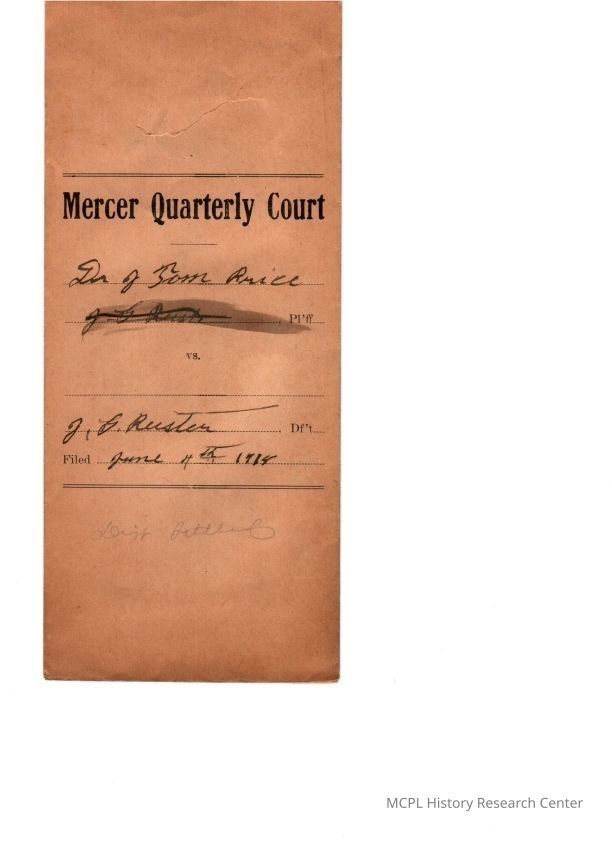 Mercer Quarterly Court
Dr J Tom Price
Pl'ff
vs.
J. G. Ruster
Df't
Filed June 4th 1914
MCPL History Research Center